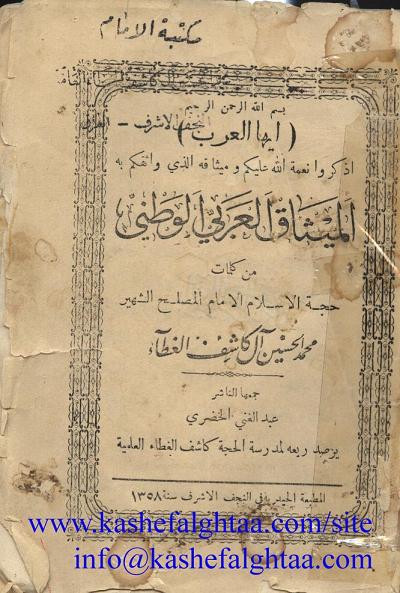 مكتبة الامام
بسم الله الرحمن الرحيم
( ايها العرب )
النجف الاشرف - العراق
اذكروا نعمة الله عليكم وميثاقه الذي واثقكم به
الميثاق العربي الوطني
من كلمات
حجة الاسلام الامام المصلح الشهير
محمد الحسين آل كاشف الغطاء
جمعها الناشر
عبد الغني الخضري
يرصد ريعه لمدرسة الحجة كاشف الغطاء العلمية
المطبعة الحيدرية في النجف الاشرف سنة ١٣٥٨
www.kashefalghtaa.com/site
info@kashefalghtaa.com